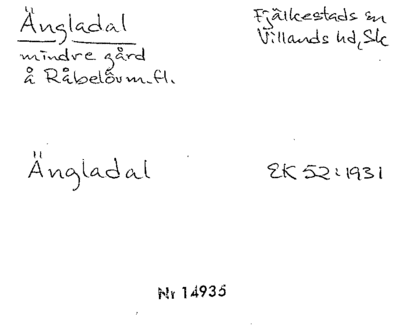 Ängladal
Fjälkestads sn
Villands hd, Sk
mindre gård
å Råbelöv m.fl.
Ängladal
EK 52:1931
Nr 14935